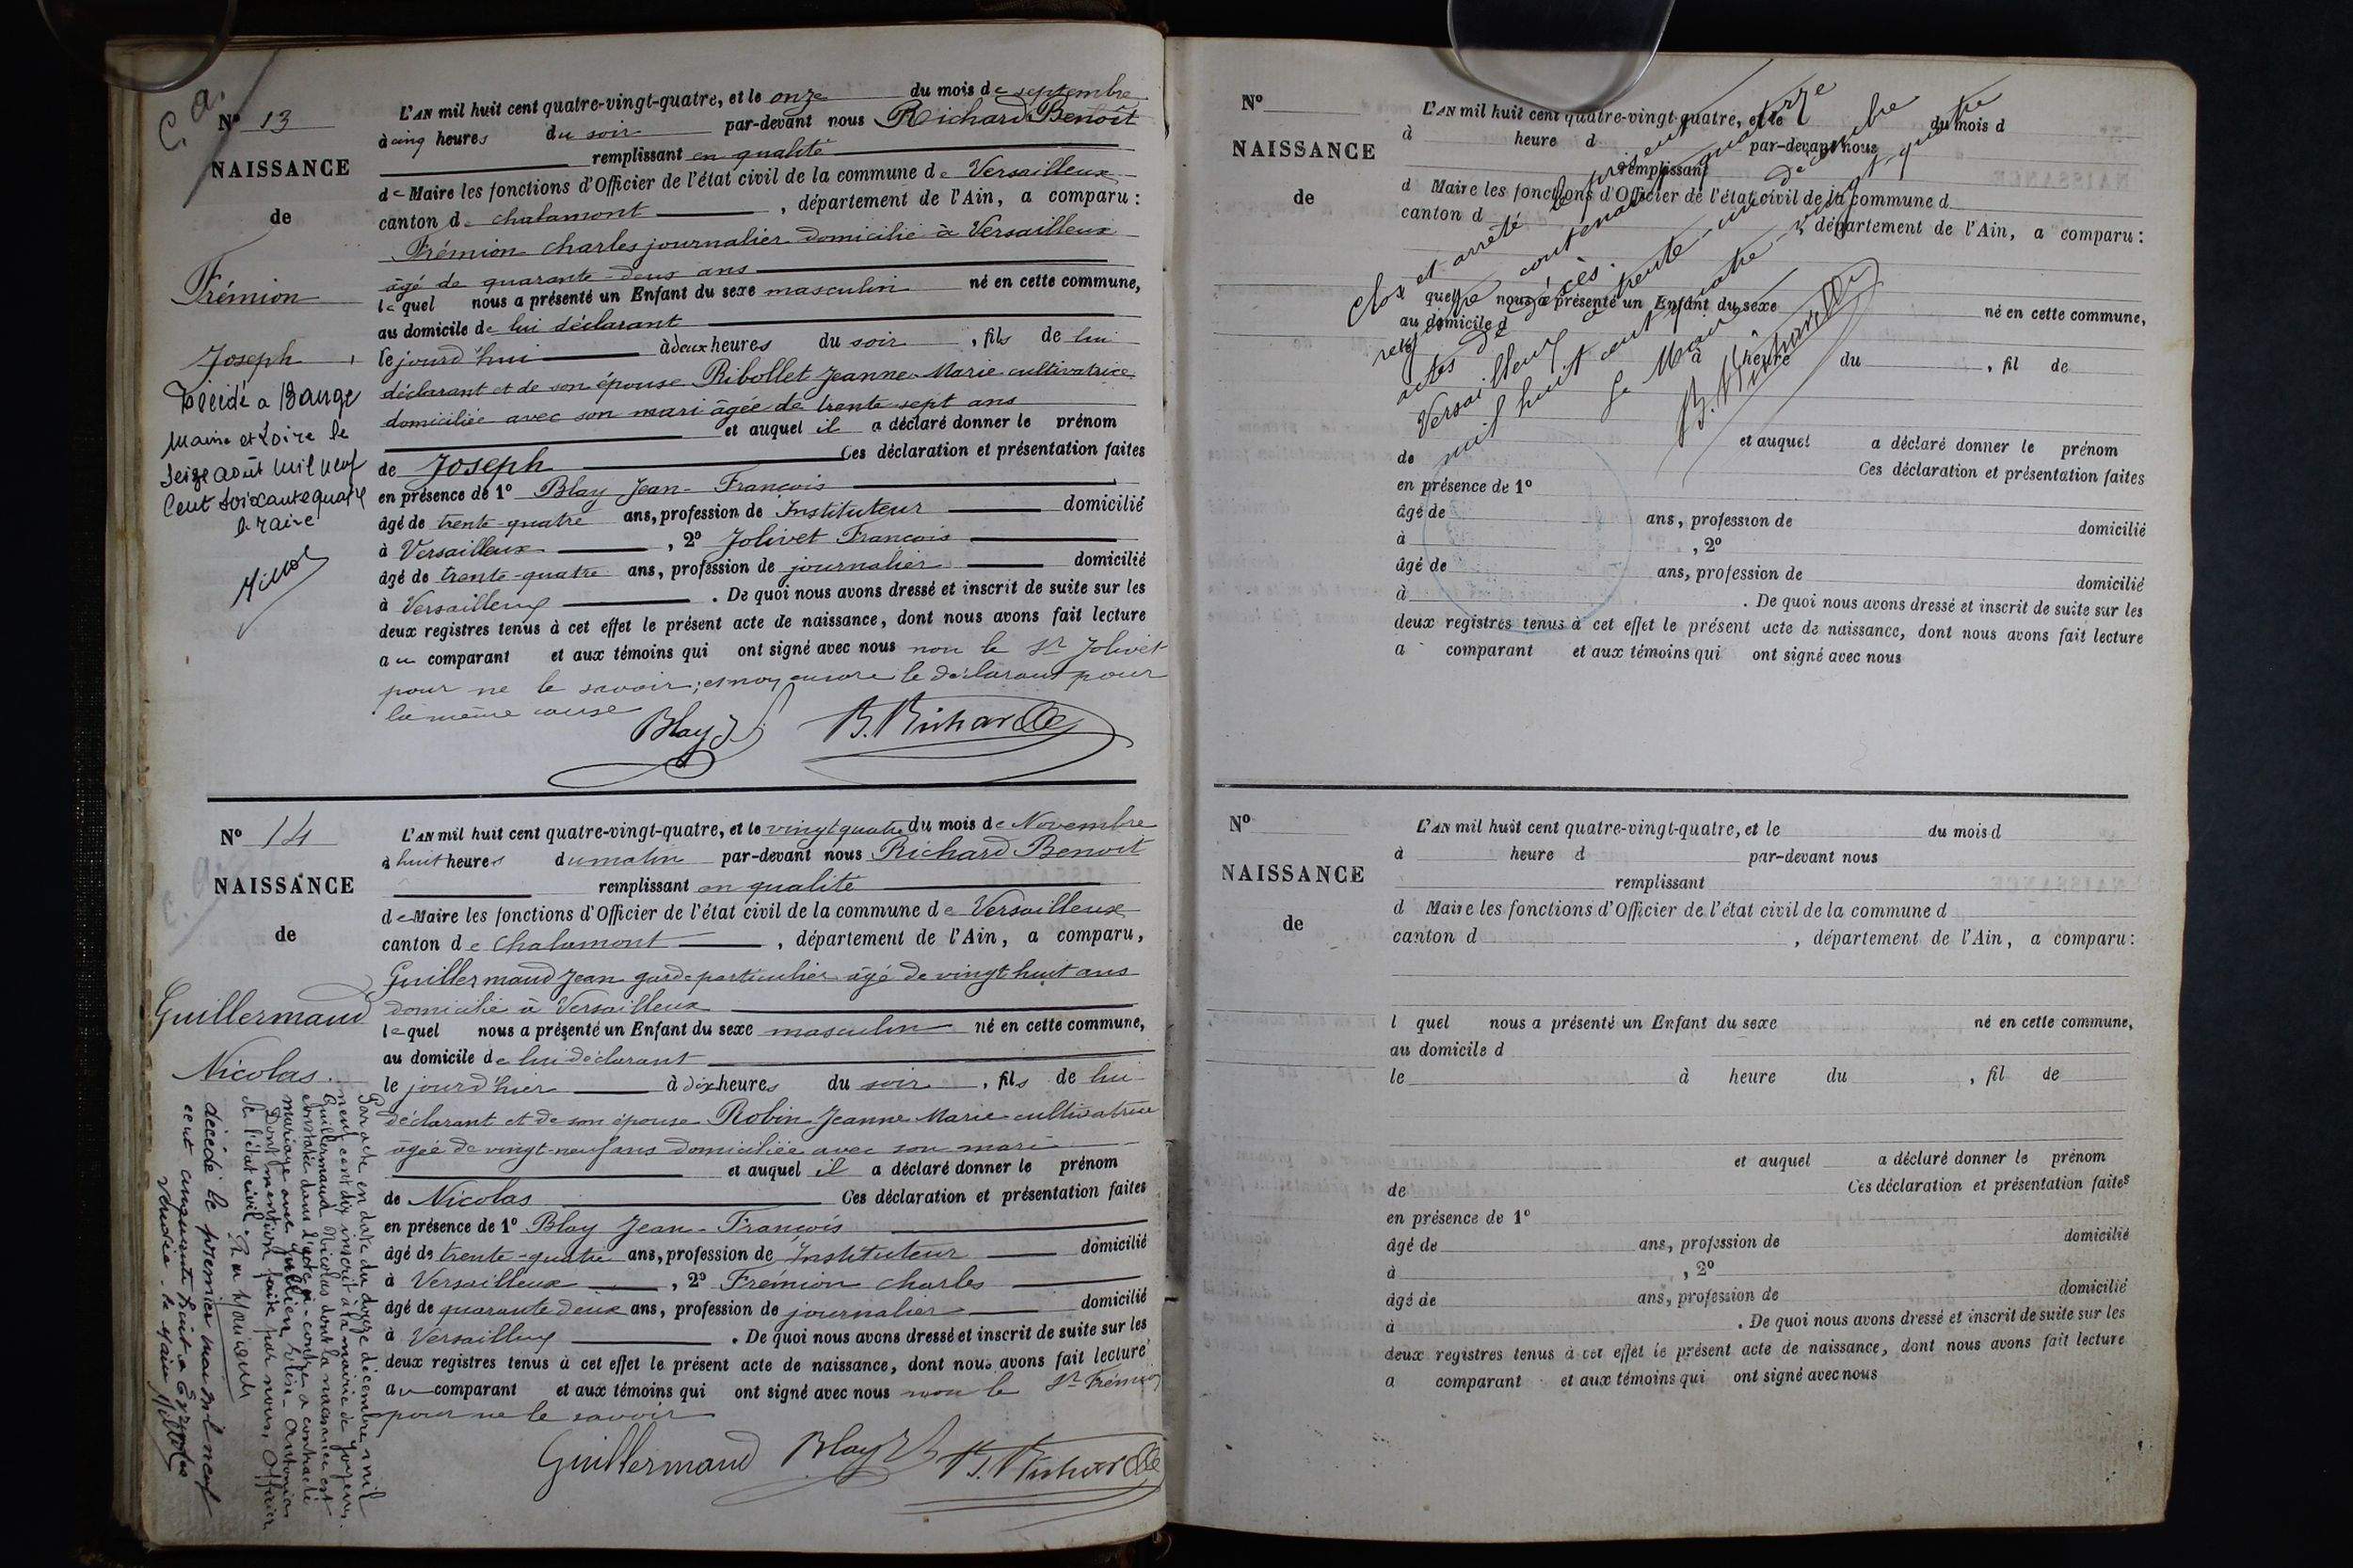 C. a.
Nº 13
NAISSANCE
de
Frémion
Joseph
Décédé a Baugé
Maine et Loire le
Seize août mil neuf
Cent Soixante quatre
le Maire
L'AN mil huit cent quatre-vingt-quatre, et le onze du mois de septembre
à cinq heures du soir par-devant nous Richard Benoît
remplissant en qualité
de Maire les fonctions d'Officier de l'état civil de la commune de Versailleux
canton de chalamont, département de l'Ain, a comparu:
Frémion charles journalier domicilié à Versailleux
âgé de quarante-deux ans
lequel nous a présenté un Enfant du sexe masculin né en cette commune,
au domicile de lui déclarant
le jourd'hui à deux heures du soir, fils de lui
déclarant et de son épouse Ribollet Jeanne-Marie cultivatrice
domiciliée avec son mari âgée de trente-sept ans
et auquel il a déclaré donner le prénom
de Joseph Ces déclaration et présentation faites
en présence de 1º Blay Jean-François
âgé de trente-quatre ans, profession de Instituteur domicilié
à Versailleux, 2º Jolivet François
âgé de trente-quatre ans, profession de journalier domicilié
à Versailleux. De quoi nous avons dressé et inscrit de suite sur les
deux registres tenus à cet effet le présent acte de naissance, dont nous avons fait lecture
au comparant et aux témoins qui ont signé avec nous non le Sr Jolivet
pour ne le savoir; et non encore le déclarant pour
la même cause
Blay J. f B. Richard
Nº 14
NAISSANCE
de
Guillermaud
Nicolas
Par acte en date du douze décembre mil
neuf cent dix inscrit à la mairie de
Guillermaud Nicolas dont la naissance est
constatée dans l'acte ci-contre a contracté
mariage avec Antonia
Dont mention faite par nous, Officier
de l'état civil.
décédé le premier mai mil neuf
cent cinquante huit a
le Maire
L'AN mil huit cent quatre-vingt-quatre, et le vingt quatre du mois de Novembre
à huit heures du matin par-devant nous Richard Benoit
remplissant en qualité
de Maire les fonctions d'Officier de l'état civil de la commune de Versailleux
canton de chalamont, département de l'Ain, a comparu,
Guillermaud Jean garde particulier âgé de vingt huit ans
domicilié à Versailleux
lequel nous a présenté un Enfant du sexe masculin né en cette commune,
au domicile de lui déclarant
le jourd'hier à dix heures du soir, fils de lui
déclarant et de son épouse Robin Jeanne Marie cultivatrice
âgée de vingt-neuf ans domiciliée avec son mari
et auquel il a déclaré donner le prénom
de Nicolas Ces déclaration et présentation faites
en présence de 1º Blay Jean-François
âgé de trente-quatre ans, profession de Instituteur domicilié
à Versailleux, 2º Frémion charles
âgé de quarante deux ans, profession de journalier domicilié
à Versailleux. De quoi nous avons dressé et inscrit de suite sur les
deux registres tenus à cet effet le présent acte de naissance, dont nous avons fait lecture
au comparant et aux témoins qui ont signé avec nous non le Sr Frémion
pour ne le savoir
Guillermaud Blay J f B. Richard
Nº
NAISSANCE
de
L'AN mil huit cent quatre-vingt-quatre, et le du mois d
à heure d par-devant nous
remplissant
d Maire les fonctions d'Officier de l'état civil de la commune d
canton d, département de l'Ain, a comparu:
quel nous a présenté un Enfant du sexe né en cette commune,
au domicile d
à heure du, fil de
et auquel a déclaré donner le prénom
de Ces déclaration et présentation faites
en présence de 1º
âgé de ans, profession de domicilié
à, 2º
âgé de ans, profession de domicilié
à. De quoi nous avons dressé et inscrit de suite sur les
deux registres tenus à cet effet le présent acte de naissance, dont nous avons fait lecture
a comparant et aux témoins qui ont signé avec nous
Clos et arrêté le présent
registre contenant quatorze
actes de
Versailleux le trente-un décembre
mil huit cent quatre-vingt-quatre
Le Maire
B. Richard
Nº
NAISSANCE
de
L'AN mil huit cent quatre-vingt-quatre, et le du mois d
à heure d par-devant nous
remplissant
d Maire les fonctions d'Officier de l'état civil de la commune d
canton d, département de l'Ain, a comparu:
l quel nous a présenté un Enfant du sexe né en cette commune,
au domicile d
le à heure du, fil de
et auquel a déclaré donner le prénom
de Ces déclaration et présentation faites
en présence de 1º
âgé de ans, profession de domicilié
à, 2º
âgé de ans, profession de domicilié
à. De quoi nous avons dressé et inscrit de suite sur les
deux registres tenus à cet effet le présent acte de naissance, dont nous avons fait lecture
a comparant et aux témoins qui ont signé avec nous